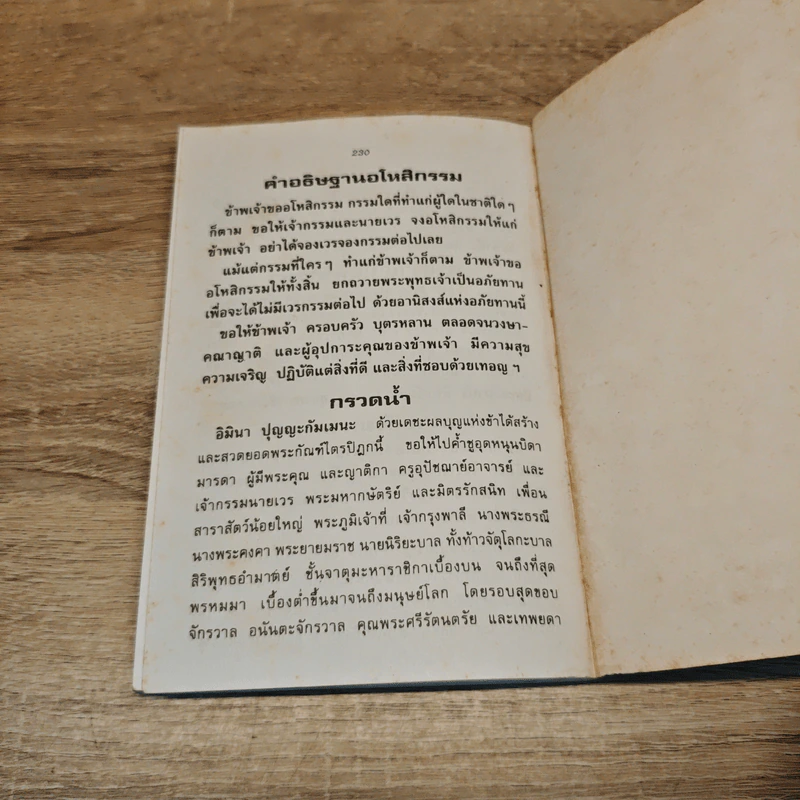 230
คำอธิษฐานอโหสิกรรม
ข้าพเจ้าขออโหสิกรรม กรรมใดที่ทำแก่ผู้ใดในชาติใด ๆ
ก็ตาม ขอให้เจ้ากรรมและนายเวร จงอโหสิกรรมให้แก่
ข้าพเจ้า อย่าได้จองเวรจองกรรมต่อไปเลย
แม้แต่กรรมที่ใคร ๆ ทำแก่ข้าพเจ้าก็ตาม ข้าพเจ้าขอ
อโหสิกรรมให้ทั้งสิ้น ยกถวายพระพุทธเจ้าเป็นอภัยทาน
เพื่อจะได้ไม่มีเวรกรรมต่อไป ด้วยอานิสงส์แห่งอภัยทานนี้
ขอให้ข้าพเจ้า ครอบครัว บุตรหลาน ตลอดจนวงษา-
คณาญาติ และผู้อุปการะคุณของข้าพเจ้า มีความสุข
ความเจริญ ปฏิบัติแต่สิ่งที่ดี และสิ่งที่ชอบด้วยเทอญ ฯ
กรวดน้ำ
อิมินา ปุญญะกัมเมนะ ด้วยเดชะผลบุญแห่งข้าได้สร้าง
และสวดยอดพระกัณฑ์ไตรปิฎกนี้ ขอให้ไปค้ำชูอุดหนุนบิดา
มารดา ผู้มีพระคุณ และญาติกา ครูอุปัชณาย์อาจารย์ และ
เจ้ากรรมนายเวร พระมหากษัตริย์ และมิตรรักสนิท เพื่อน
สาราสัตว์น้อยใหญ่ พระภูมิเจ้าที่ เจ้ากรุงพาลี นางพระธรณี
นางพระคงคา พระยายมราช นายนิริยะบาล ทั้งท้าวจัตุโลกะบาล
สิริพุทธอำมาตย์ ชั้นจาตุมะหาราชิกาเบื้องบน จนถึงที่สุด
พรหมมา เบื้องต่ำขึ้นมาจนถึงมนุษย์โลก โดยรอบสุดขอบ
จักรวาล อนันตะจักรวาล คุณพระศรีรัตนตรัย และเทพยดา